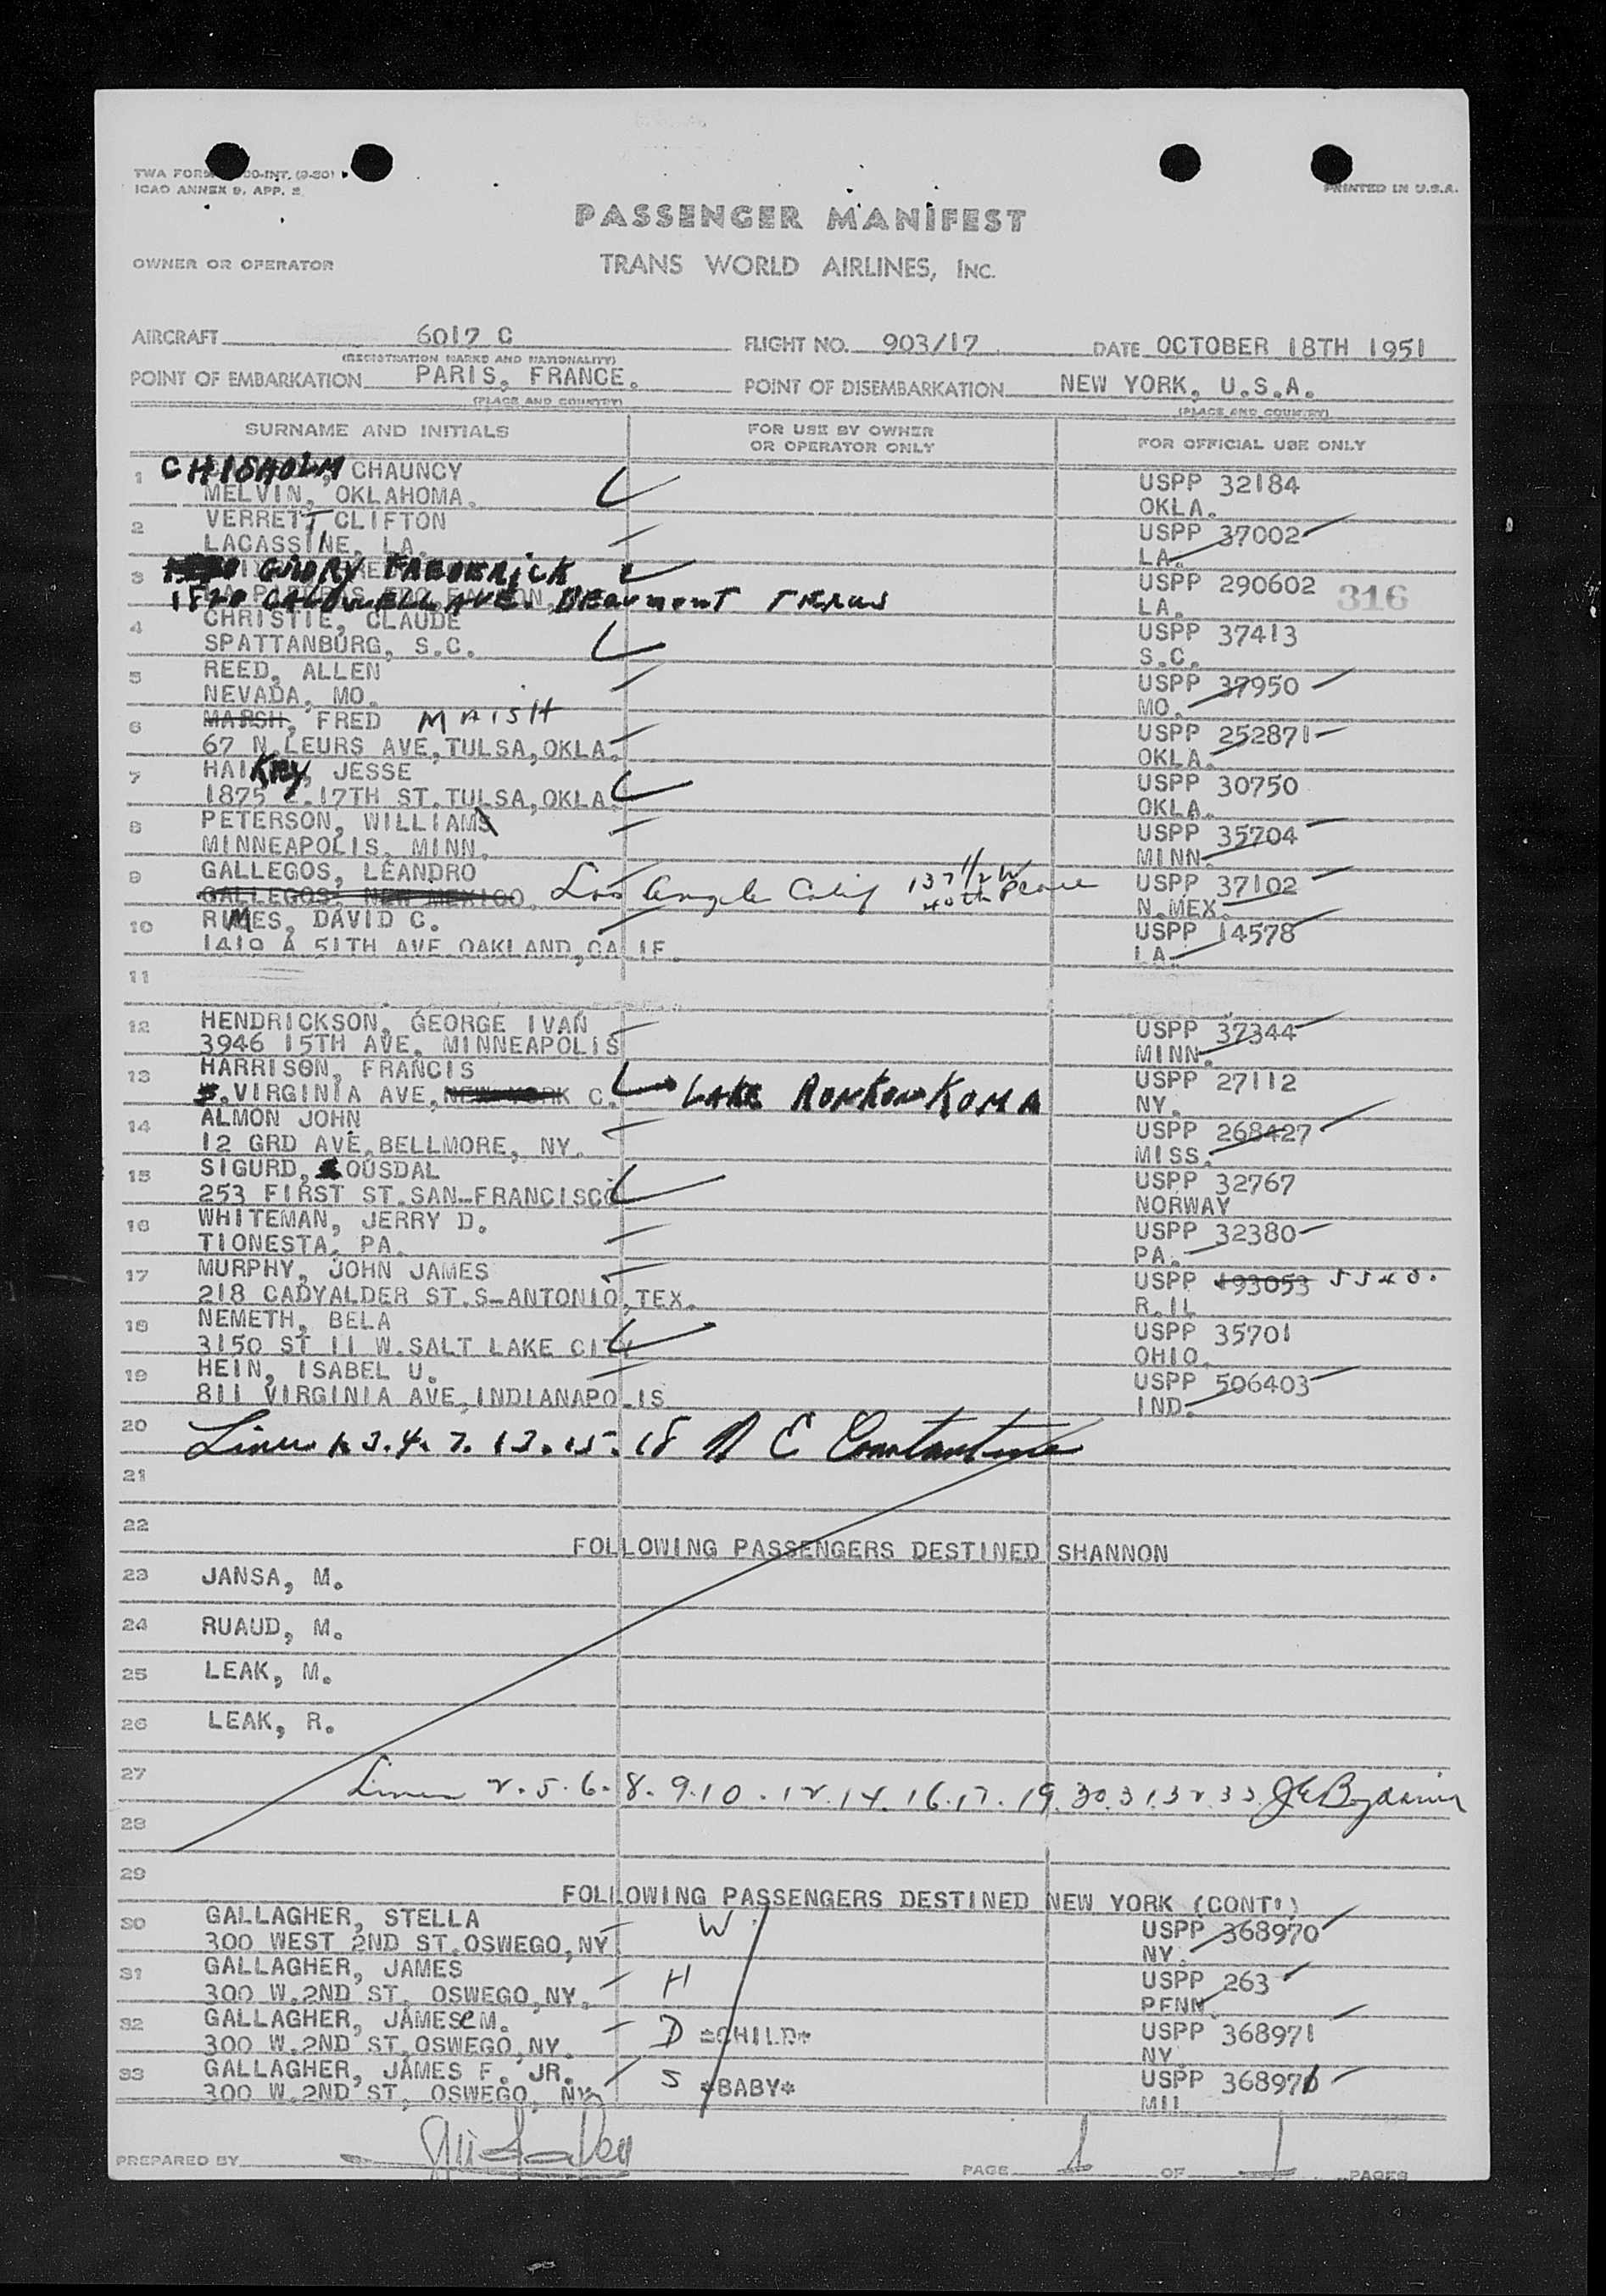 TWA FORM 00-INT. (9-50)
ICAO ANNEX 9, APP. 2
PRINTED IN U.S.A.
PASSENGER MANIFEST
OWNER OR OPERATOR TRANS WORLD AIRLINES, INC.
AIRCRAFT 6017 C FLIGHT NO. 903/17 DATE OCTOBER 18TH 1951
(REGISTRATION MARKS AND NATIONALITY)
POINT OF EMBARKATION PARIS, FRANCE. POINT OF DISEMBARKATION NEW YORK, U.S.A.
(PLACE AND COUNTRY) (PLACE AND COUNTRY)
SURNAME AND INITIALS FOR USE BY OWNER OR OPERATOR ONLY FOR OFFICIAL USE ONLY
1 CHISHOLM, CHAUNCY USPP 32184
MELVIN, OKLAHOMA. OKLA.
2 VERRETT CLIFTON USPP 37002
LACASSINE, LA. LA.
3 GUIDRY FREDERICK USPP 290602 316
1820 CALDWELL AVE. BEAUMONT TEXAS LA.
4 CHRISTIE, CLAUDE USPP 37413
SPATTANBURG, S.C. S.C.
5 REED, ALLEN USPP 37950
NEVADA, MO. MO.
6 MARSH, FRED MAISH USPP 252871
67 N.LEURS AVE,TULSA,OKLA. OKLA.
7 HAIKEY, JESSE USPP 30750
1875 E.17TH ST.TULSA,OKLA. OKLA.
8 PETERSON, WILLIAMS USPP 35704
MINNEAPOLIS, MINN. MINN.
9 GALLEGOS, LEANDRO USPP 37102
GALLEGOS, NEW MEXICO. Los Angeles Calif 137 1/2 W 40th Place N.MEX.
10 RIMES, DAVID C. USPP 14578
1419 A 51TH AVE OAKLAND,CALIF. LA.
11
12 HENDRICKSON, GEORGE IVAN USPP 37344
3946 15TH AVE. MINNEAPOLIS MINN.
13 HARRISON, FRANCIS USPP 27112
S.VIRGINIA AVE,NEW YORK C. LAKE RONKONKOMA NY.
14 ALMON JOHN USPP 268427
12 GRD AVE,BELLMORE, NY. MISS.
15 SIGURD, OUSDAL USPP 32767
253 FIRST ST.SAN-FRANCISCO NORWAY
16 WHITEMAN, JERRY D. USPP 32380
TIONESTA, PA. PA.
17 MURPHY, JOHN JAMES USPP 193053
218 CADYALDER ST.S-ANTONIO,TEX. R.IL
18 NEMETH, BELA USPP 35701
3150 ST 11 W.SALT LAKE CITY OHIO.
19 HEIN, ISABEL U. USPP 506403
811 VIRGINIA AVE,INDIANAPOLIS IND.
20 Lines 1. 3. 4. 7. 13. 15. 18 E Constantine
21
22
FOLLOWING PASSENGERS DESTINED SHANNON
23 JANSA, M.
24 RUAUD, M.
25 LEAK, M.
26 LEAK, R.
27 Lines 2. 5. 6. 8. 9. 10. 12. 14. 16. 17. 19. 30. 31. 32. 33.
28
29
FOLLOWING PASSENGERS DESTINED NEW YORK (CONT')
30 GALLAGHER, STELLA W USPP 368970
300 WEST 2ND ST.OSWEGO,NY NY.
31 GALLAGHER, JAMES H USPP 263
300 W.2ND ST, OSWEGO,NY. PENN.
32 GALLAGHER, JAMESE M. D *CHILD* USPP 368971
300 W.2ND ST,OSWEGO,NY. NY.
33 GALLAGHER, JAMES F. JR. S *BABY* USPP 368976
300 W.2ND ST, OSWEGO, NY
PREPARED BY PAGE 1 OF 1 PAGES